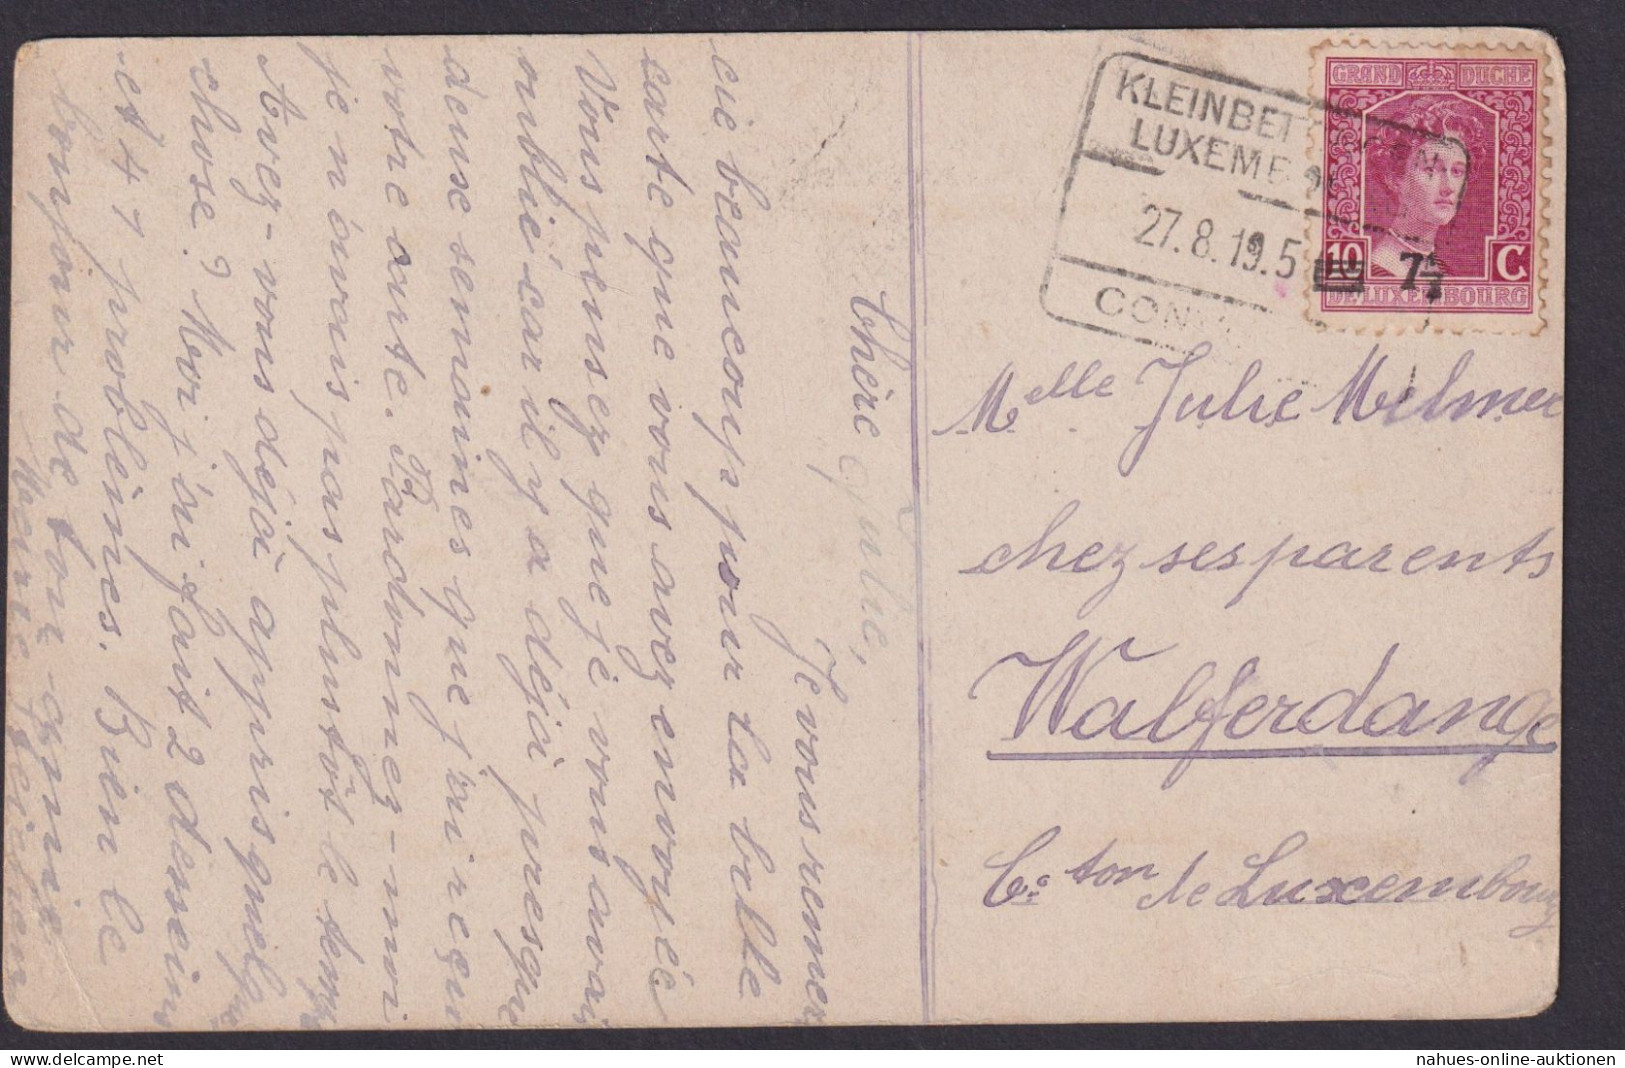 Chère Julie,
Je vous remer
cie beaucoup pour la belle
carte que vous avez envoyée
Vous pensez que je vous avais
oublié car il y a déjà presque
deuse semaines que j'ai reçu
votre carte. Pardonnez-moi
je n'avais pas plustôt le temps
Avez-vous déjà appris quelque
chose? Moi j'ai fait 2 dessins
et 41 problèmes. Bien le
bonjour de ton amie
Marie
KLEINBETT GEN
LUXEMB
27.8.19.5
CON
GRAND DUCHE
10 C
7½
DE LUXEMBOURG
Melle Julie Melmer
chez ses parents
Walferdange
Cton de Luxembourg
nahues-online-auktionen